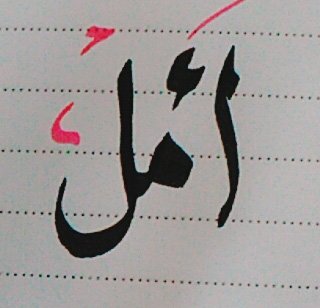 أمل